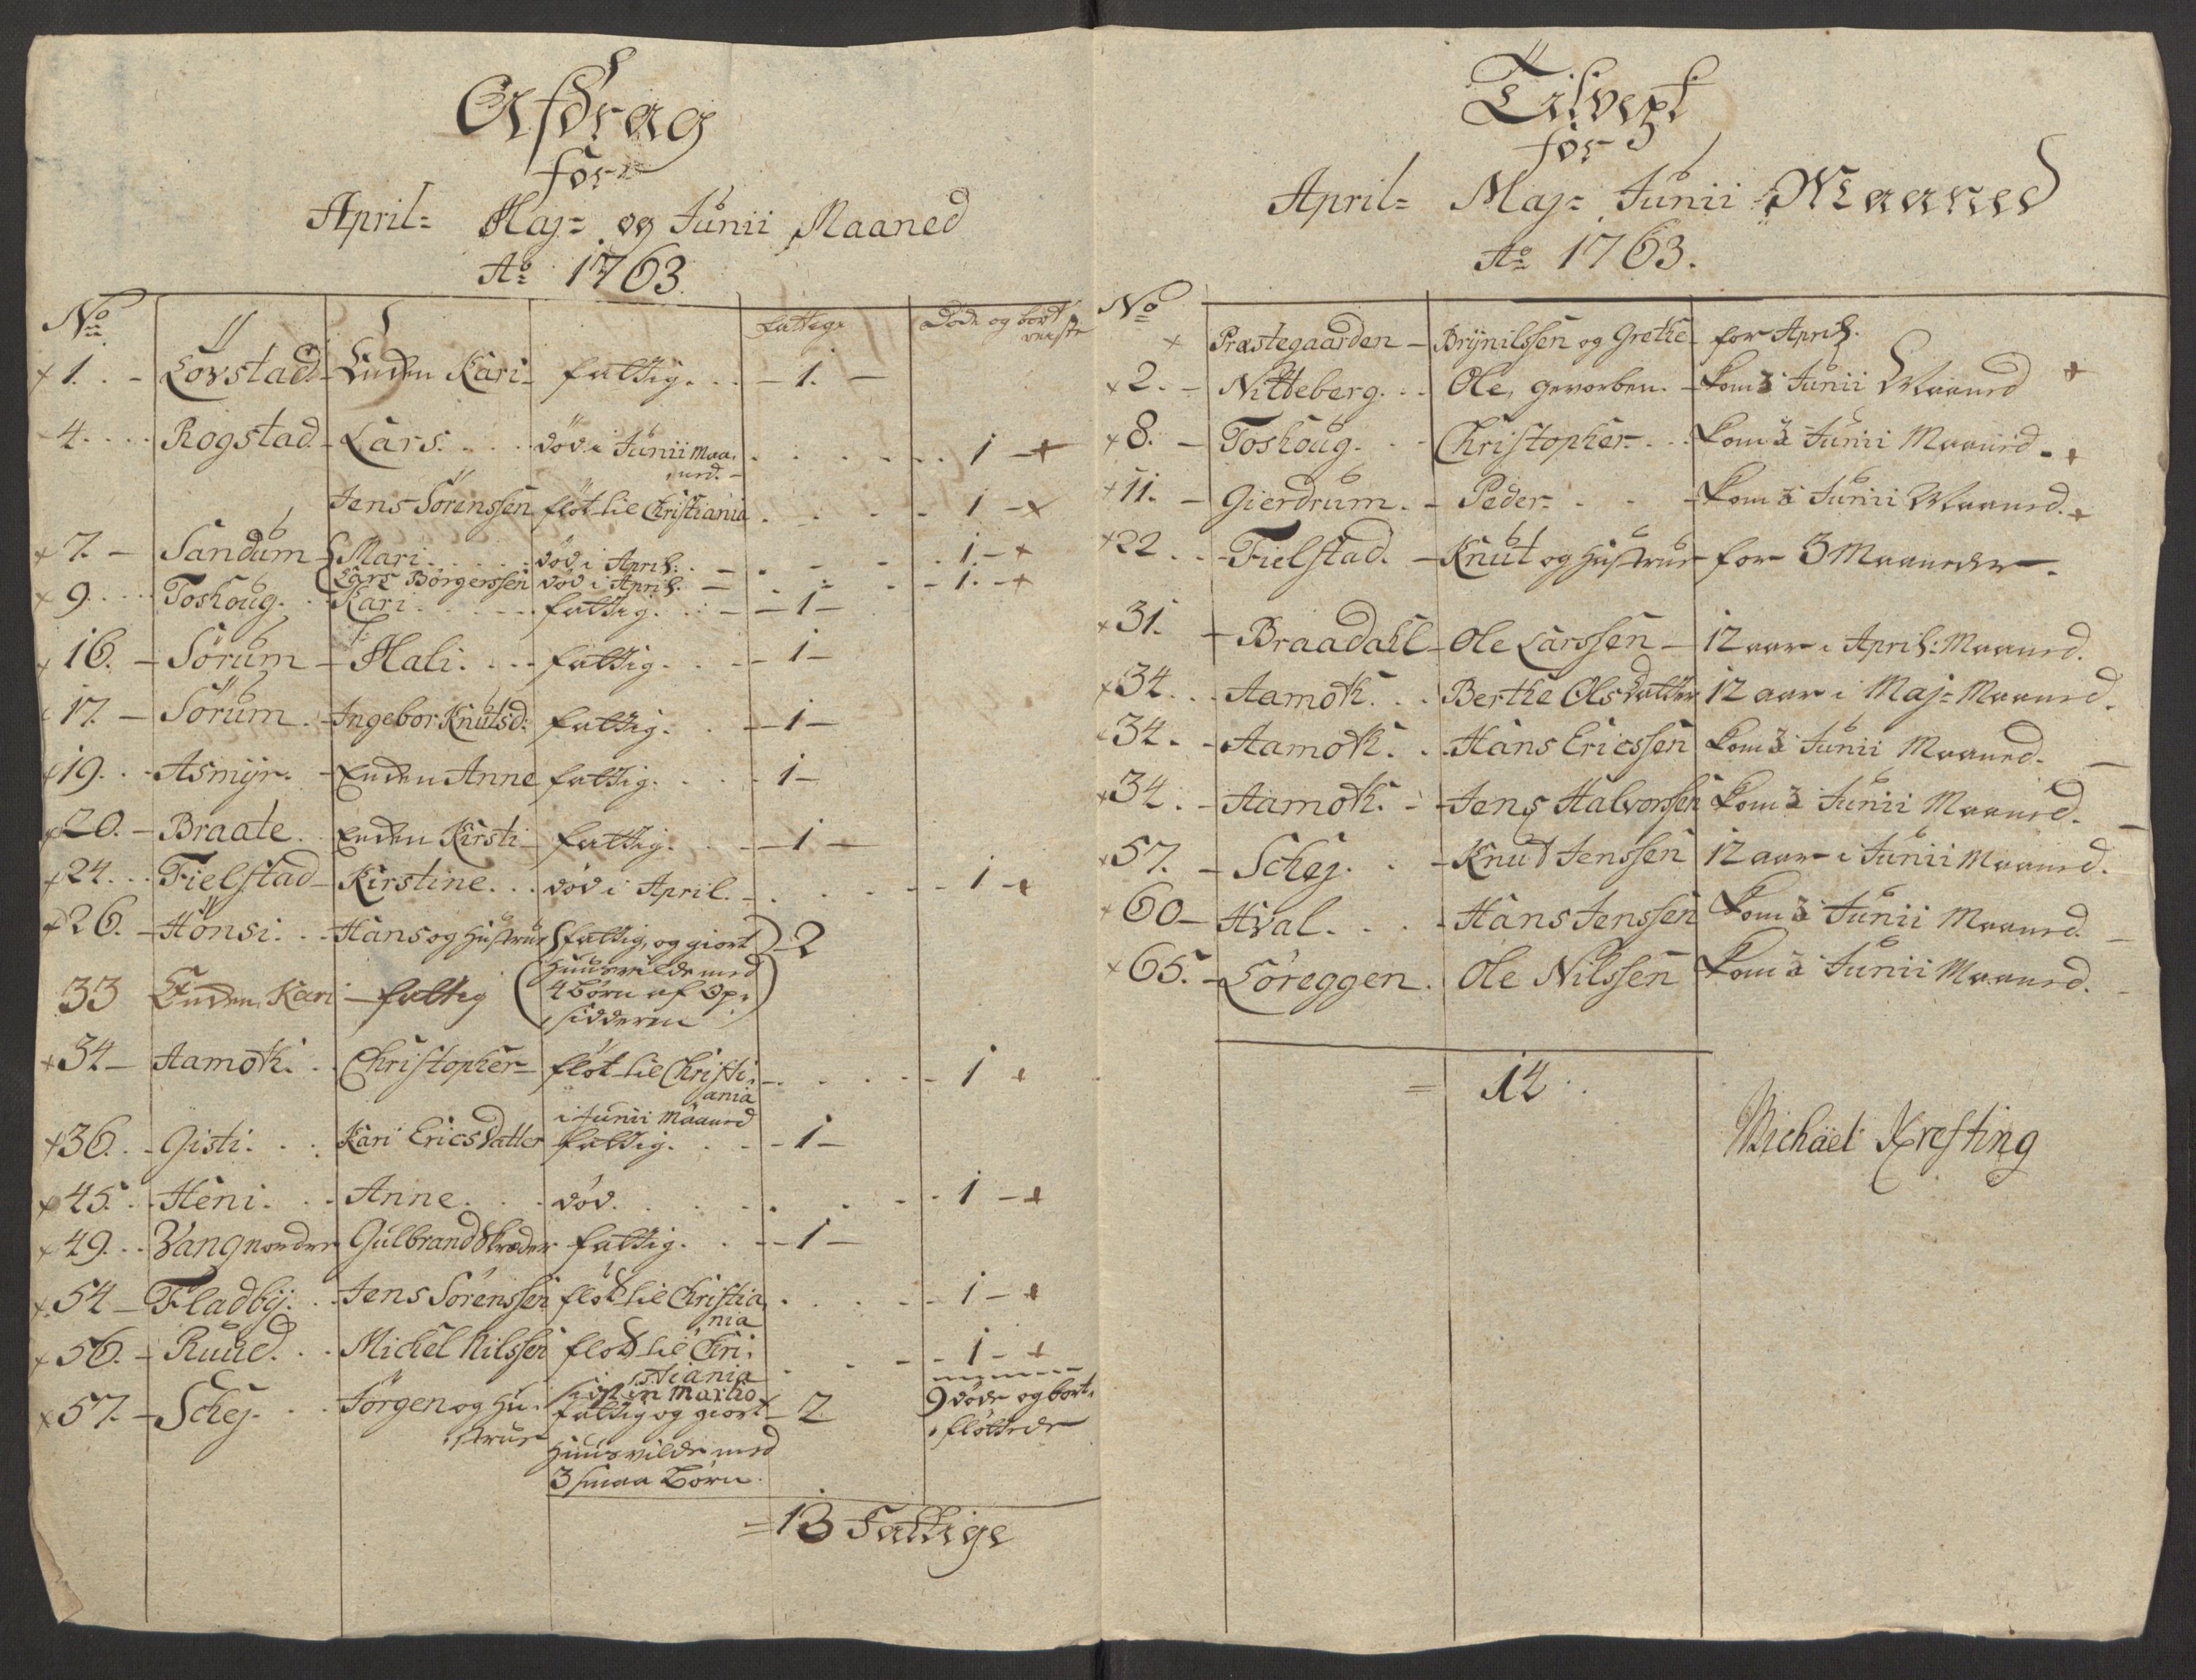 Afdrag
for
April= Maj= og Junii Maaned
Ao 1763.
No Fattige Döde og bort reiste
1. Lövstad Enken Kari fattig. 1.
4. Rogstad Lars. död i Junii Maa,
ned.
Jens Sörenssen flöt til Christiania 1
7. Sandum Mari död i April: 1
Lars Börgerssen död i April. 1.
9. Toshoug. Kari fattig. 1
16. Sörum Mali. fattig. 1
17. Sörum Ingebor Knutsd: fattig. 1
19. Asmyr. Enken Anne fattig. 1
20. Braate. Enken Kirsti fattig. 1
24. Fielstad Kirstine. död i April. 1
26. Hönsi. Hans og Hustrue fattig, og giort 2
Huusvilde med
33 Enken Kari fattig 4 Börn af Op,
sidderen
34 Aamodt. Christopher flöt til Christi, 1
ania
i Junii Maaned
36. Gisti. Kari Ericsdatter fattig. 1
45. Heni. Anne död. 1
49. Vang nordre Gulbrand Skreder fattig. 1
54 Fladby. Jens Sörenssen flöt til Christia 1
nia
56. Ruud. Michel Nilssen flöt til Chri, 1
stiania
sidst in Martio
57. Schej. Jörgen og Hu, fattig og giort 2 9 döde og bort,
strue flöttede
Huusvilde med
3 smaa Börn.
= 13 Fattige
Tilvext
for
April= Maj= Junii Maaned
Ao 1763.
No
Præstegaarden Brynilssen og Grethe for April.
2. Nitteberg. Ole, gevorben. kom i Junii Maaned
8. Toshoug. Christopher kom i Junii Maaned
11. Gierdrum. Peder kom i Junii Maaned.
22 Fielstad. Knut og Hustrue for 3 Maaneder.
31. Braadahl Ole Larssen 12 aar i April: Maaned.
34. Aamodt. Berthe Olsdatter 12 aar i Maj= Maaned.
34. Aamodt. Hans Ericssen kom i Junii Maaned.
34. Aamodt. Jens Halvorssen kom i Junii Maaned.
57. Schej. Knud Jenssen 12 aar i Junii Maaned.
60 Hval. Hans Jenssen kom i Junii Maaned.
65. Löreggen. Ole Nilssen kom i Junii Maaned.
= 14.
Michael Krefting